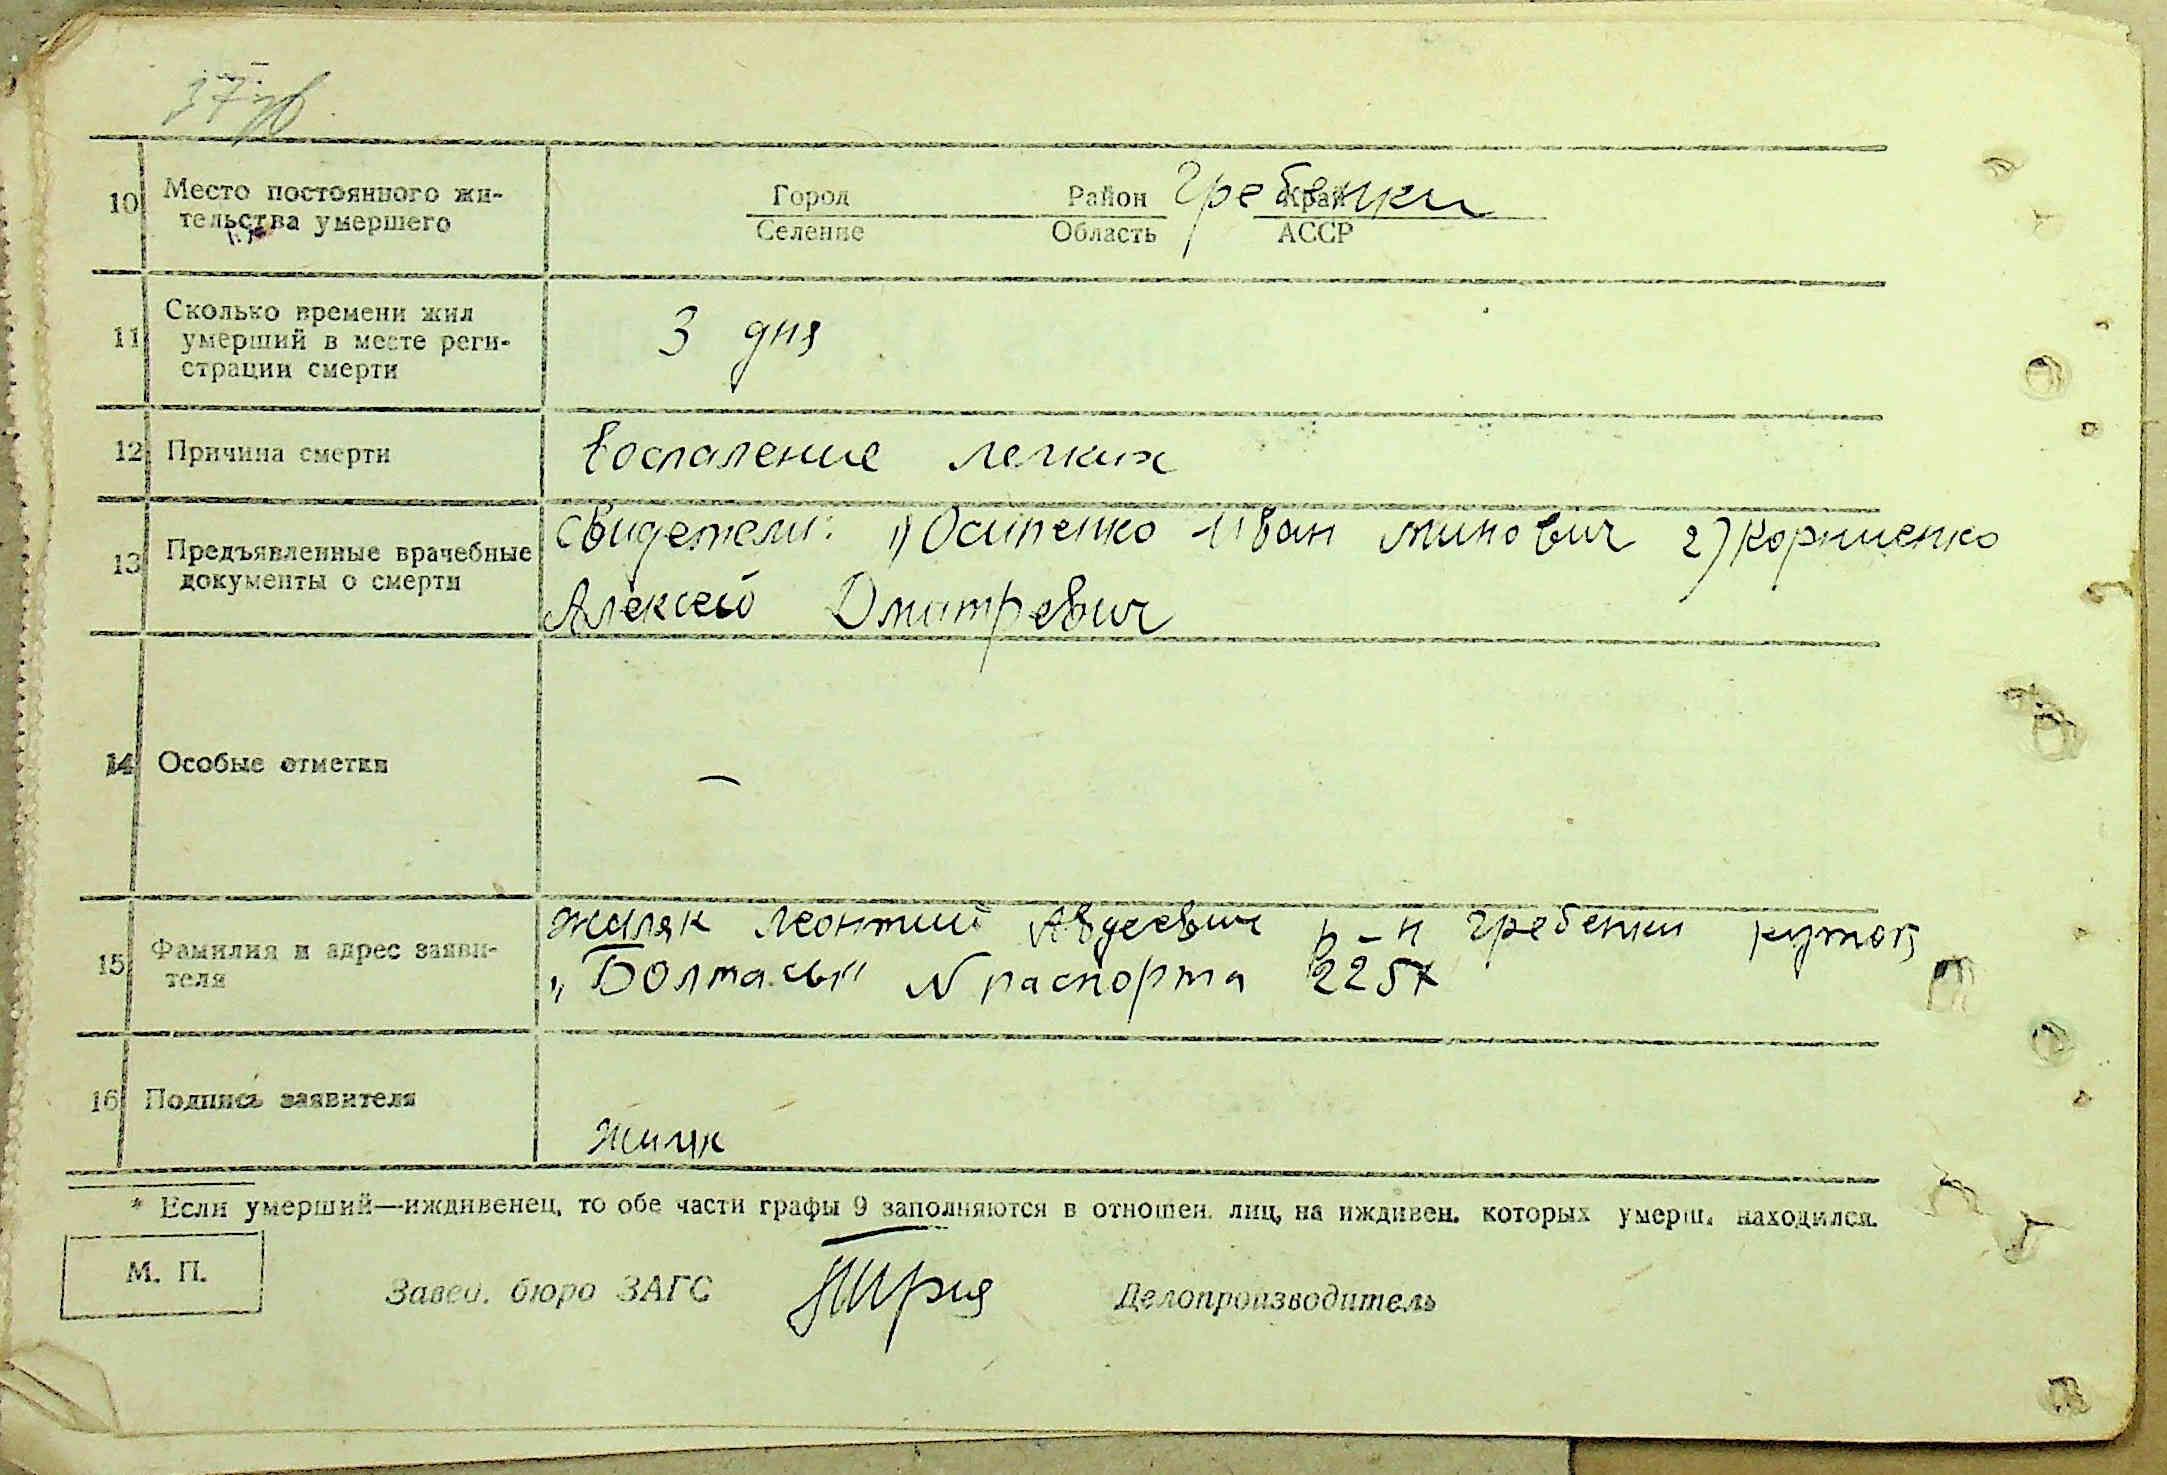 10 Место постоянного жи-
тельства умершего
Город Район Гребенки Край
Селение Область АССР
11 Сколько времени жил
умерший в месте реги-
страции смерти
3 дня
12 Причина смерти
воспаление легких
13 Предъявленные врачебные
документы о смерти
свидетели: 1) Осипенко Иван минович 2) Корниенко
Алексей Дмитревич
14 Особые отметки
—
15 Фамилия и адрес заяви-
теля
Жиляк Леонтий Авдеевич р-н Гребенки
№ паспорта
16 Подпись заявителя
Жиляк
* Если умерший—иждивенец, то обе части графы 9 заполняются в отношен. лиц, на иждивен. которых умерш. находился.
М. П.
Завед. бюро ЗАГС Делопроизводитель